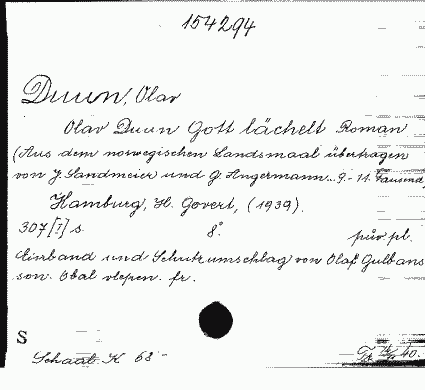 154294
Duun, Olav
Olav Duun Gott lächelt Roman
(Aus dem norwegischen Landsmaal übertragen
von J. Sandmeier und G. Angermann. 9.-11. Tausend)
Hamburg, H. Govert, (1939).
307 [1] s. 8°. pův. pl.
Einband und Schutzumschlag von Olaf Gulbans
son. Obal vlepen. fr.
S
K 68-
40.